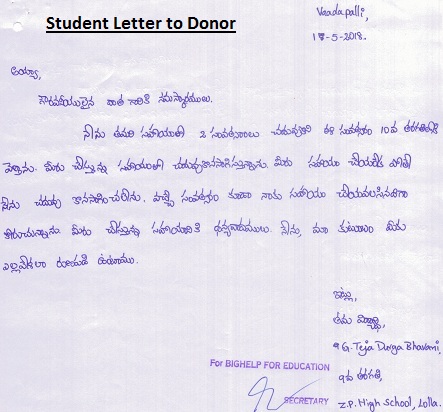 Student Letter to Donor
Vaadapalli,
17-5-2018.
అయ్యా,
గౌరవనీయులైన దాత గారికి నమస్కారములు.
నేను తమరి సహాయంతో 2 సంవత్సరాలు చదువుకుని ఈ సంవత్సరం 10వ తరగతిలోకి
వెళ్తాను. మీరు చేస్తున్న సహాయంతో చదువుకొనసాగిస్తున్నాను. మీరు సహాయం చేయకపోతే
నేను చదువు కొనసాగించలేను. వచ్చే సంవత్సరం కూడా నాకు సహాయం చేయవలసినదిగా
కోరుచున్నాను. మీరు చేస్తున్న సహాయానికి ధన్యవాదములు. నేను, మా కుటుంబం మీకు
ఎల్లవేళలా రుణపడి ఉంటాము.
ఇట్లు,
తమ విద్యార్థి,
G. Teja Durga Bhavani,
9వ తరగతి,
Z.P. High School, Lolla.
For BIGHELP FOR EDUCATION
SECRETARY